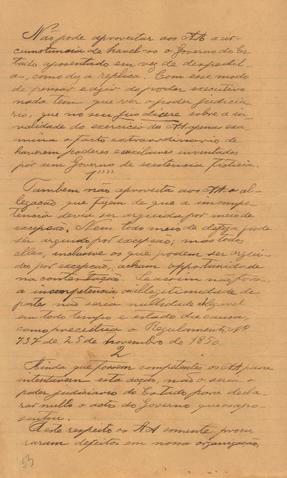 Não pode aproveitar aos AA a cir-
cumstancia de havel-os o Governo do Es-
tado aposentado em vez de despedil-
os, como diz a replica. Com esse modo
de pensar e agir do poder executivo
nada tem que ver o poder judicia-
rio, que no seu judicare sobre a in-
validade do exercicio dos AA apenas
o facto extraordinario de
haverem poderes
por um Governo de
Tambem não aproveita aos AA a al-
legação que fazem de que a incompe-
tencia devia ser arguida por meio de
excepção. Nem todo meio de defeza pode
ser arguido por excepção; mas todos
elles, inclusive os que podem ser argui-
dos por excepção, acham opportunidade
na contestação. E assim não fora,
a incompetencia ou illegitimidade de
parte não seria nullidade allegavel
em todo tempo e estado da causa,
como preceitúa o Regulamento Nº
737 de 25 de novembro de 1850.
2
Ainda que fossem competentes os AA para
intentarem esta acção, não o seria o
poder judiciario do Estado para decla-
rar nullo o acto do Governo que os apo-
sentou.
A este respeito os AA somente procu-
raram defeitos em nossa organização,
53